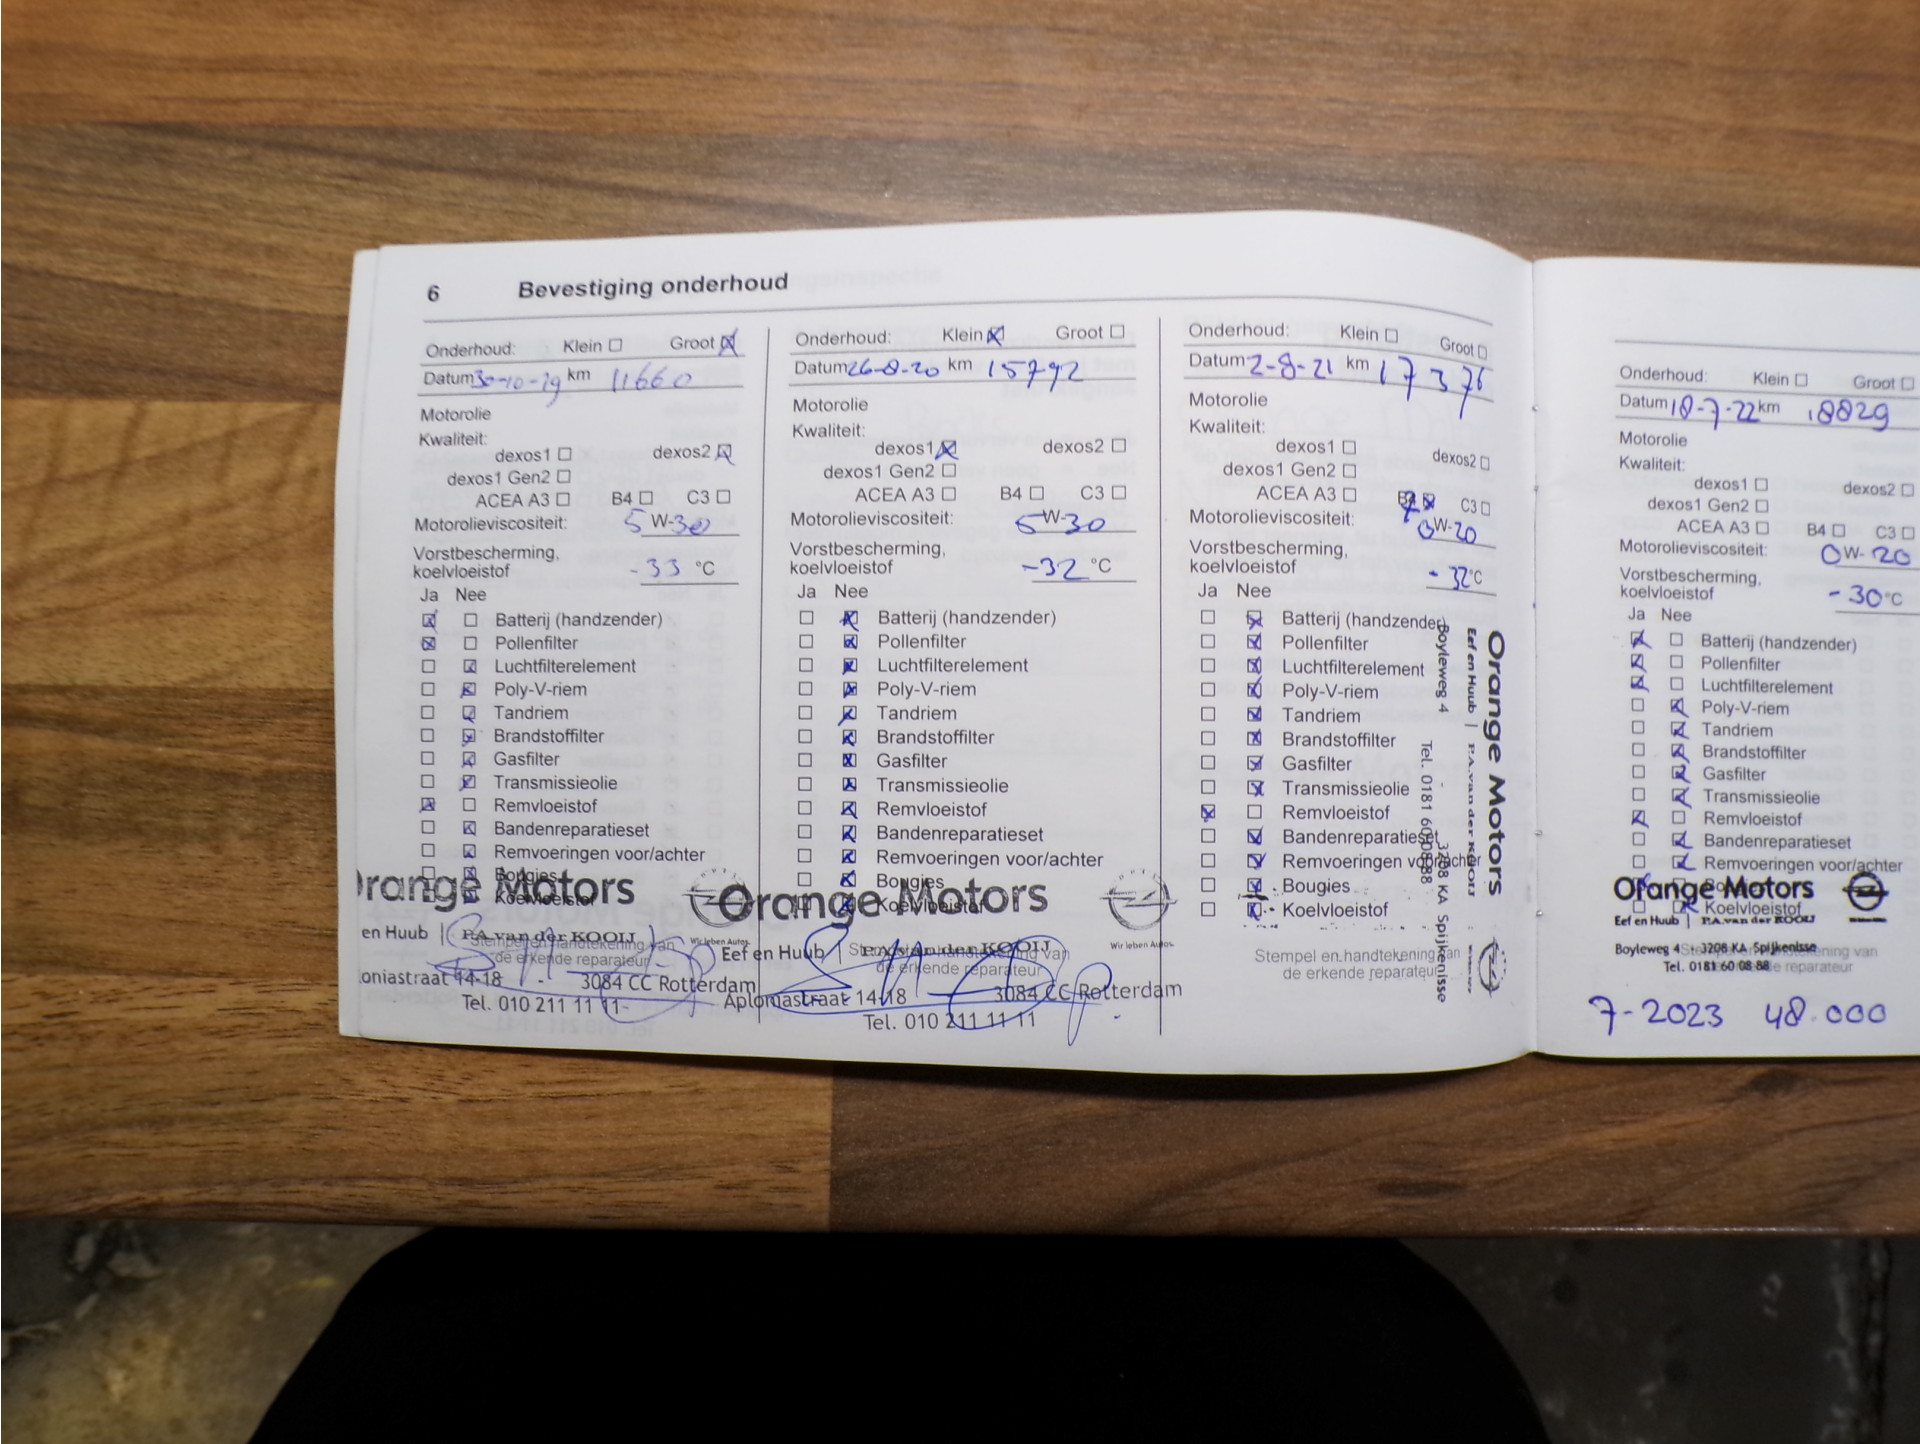 6 Bevestiging onderhoud
Onderhoud: Klein Groot
Datum 30-10-19 km 11660
Motorolie
Kwaliteit:
dexos1 dexos2
dexos1 Gen2
ACEA A3 B4 C3
Motorolieviscositeit: 5 W-30
Vorstbescherming,
koelvloeistof -33 °C
Ja Nee
Batterij (handzender)
Pollenfilter
Luchtfilterelement
Poly-V-riem
Tandriem
Brandstoffilter
Gasfilter
Transmissieolie
Remvloeistof
Bandenreparatieset
Remvoeringen voor/achter
Bougies
Koelvloeistof
Orange Motors
en Huub | P.A. van der KOOIJ
Stempel en handtekening van
de erkende reparateur
loniastraat 14-18 - 3084 CC Rotterdam
Tel. 010 211 11 11
Onderhoud: Klein Groot
Datum 26-8-20 km 15792
Motorolie
Kwaliteit:
dexos1 dexos2
dexos1 Gen2
ACEA A3 B4 C3
Motorolieviscositeit: 5 W-30
Vorstbescherming,
koelvloeistof -32 °C
Ja Nee
Batterij (handzender)
Pollenfilter
Luchtfilterelement
Poly-V-riem
Tandriem
Brandstoffilter
Gasfilter
Transmissieolie
Remvloeistof
Bandenreparatieset
Remvoeringen voor/achter
Bougies
Koelvloeistof
Orange Motors
Wir leben Autos.
Eef en Huub | P.A. van der KOOIJ
Stempel en handtekening van
de erkende reparateur
Aploniastraat 14-18 - 3084 CC Rotterdam
Tel. 010 211 11 11
Wir leben Autos.
Onderhoud: Klein Groot
Datum 2-8-21 km 17376
Motorolie
Kwaliteit:
dexos1 dexos2
dexos1 Gen2
ACEA A3 B4 C3
Motorolieviscositeit: 0W-20
Vorstbescherming,
koelvloeistof -32°C
Ja Nee
Batterij (handzender)
Pollenfilter
Luchtfilterelement
Poly-V-riem
Tandriem
Brandstoffilter
Gasfilter
Transmissieolie
Remvloeistof
Bandenreparatieset
Remvoeringen voor/achter
Bougies
Koelvloeistof
Stempel en handtekening van
de erkende reparateur
Orange Motors
Eef en Huub | P.A. van der KOOIJ
Boyleweg 4 - 3208 KA Spijkenisse
Tel. 0181 60 08 88
Onderhoud: Klein Groot
Datum 18-7-22 km 18829
Motorolie
Kwaliteit:
dexos1 dexos2
dexos1 Gen2
ACEA A3 B4 C3
Motorolieviscositeit: 0W-20
Vorstbescherming,
koelvloeistof -30°C
Ja Nee
Batterij (handzender)
Pollenfilter
Luchtfilterelement
Poly-V-riem
Tandriem
Brandstoffilter
Gasfilter
Transmissieolie
Remvloeistof
Bandenreparatieset
Remvoeringen voor/achter
Koelvloeistof
Orange Motors
Eef en Huub | P.A. van der KOOIJ
Boyleweg 4 - 3208 KA Spijkenisse
Tel. 0181 60 08 88
7-2023 48.000